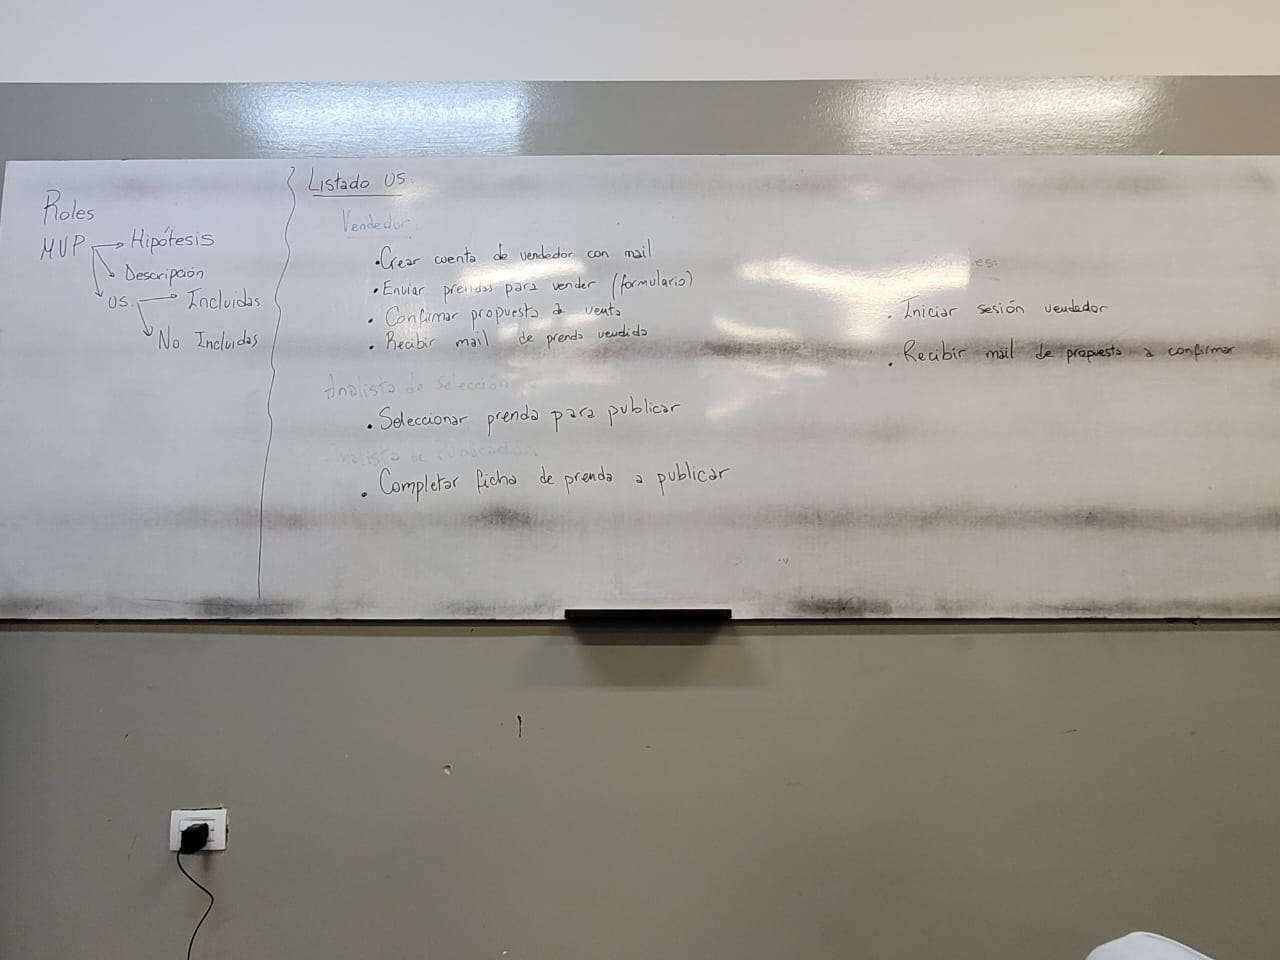 Roles
MVP → Hipótesis
Descripción
US. → Incluidas
No Incluidas
Listado US.
Vendedor
• Crear cuenta de vendedor con mail
• Enviar prendas para vender (formulario)
• Confirmar propuesta de venta
• Recibir mail de prenda vendida
Analista de Selección
• Seleccionar prenda para publicar
• Completar ficha de prenda a publicar
• Iniciar sesión vendedor
• Recibir mail de propuesta a confirmar